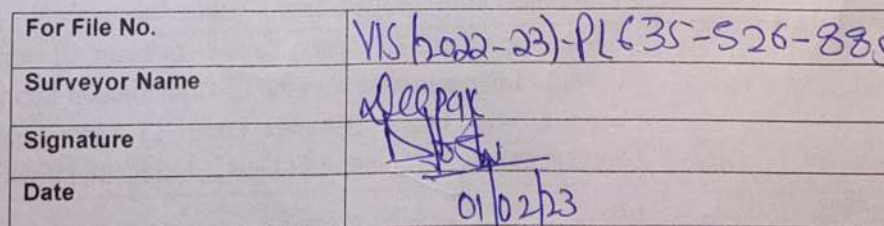 For File No. VIS(2022-23)-PL635-526-88
Surveyor Name Deepak
Signature
Date 01/02/23